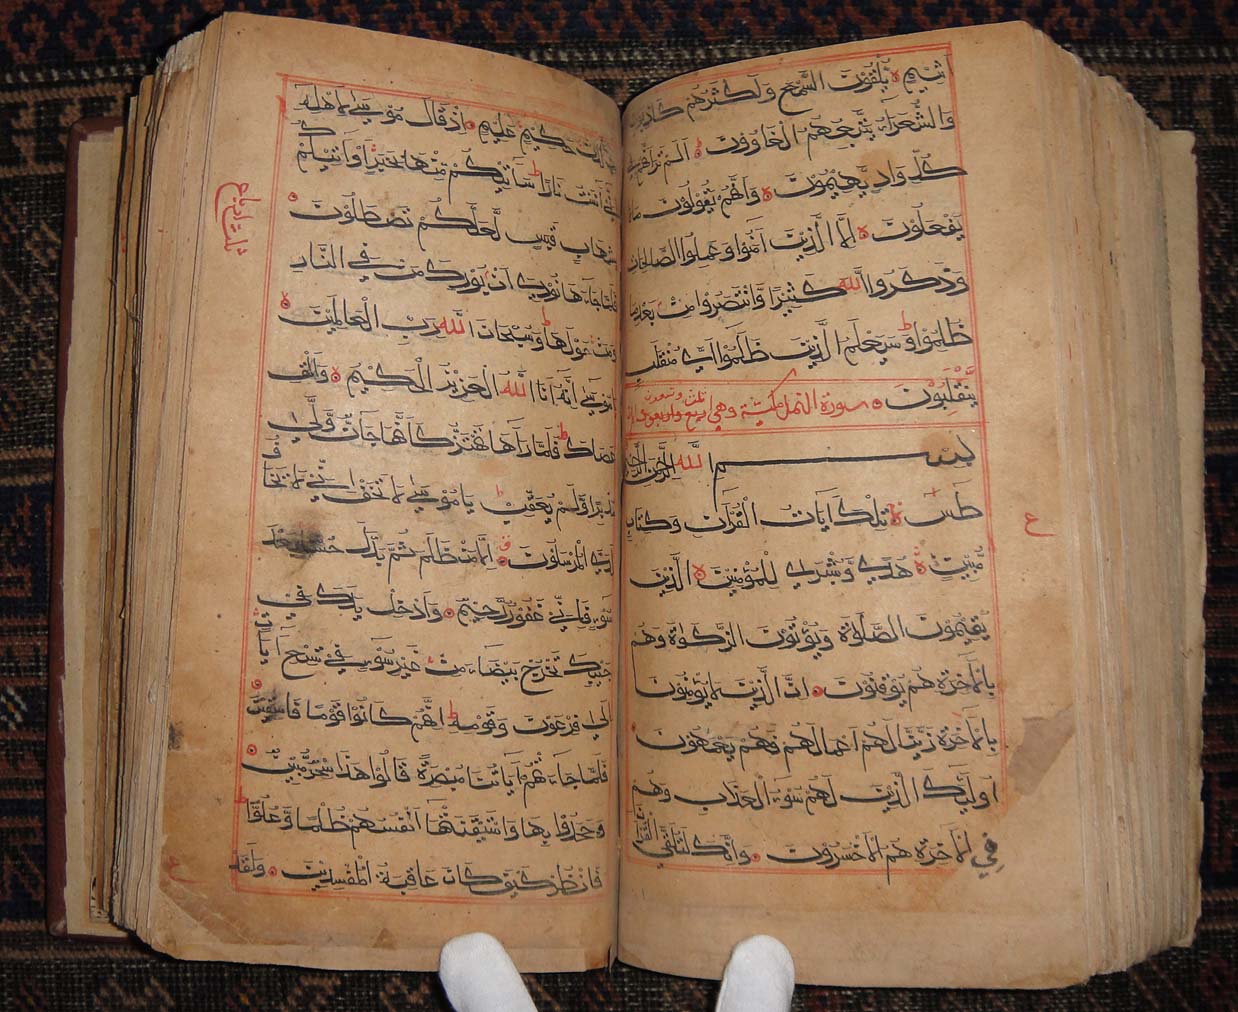 اَثِيمٍ يُلْقُونَ السَّمْعَ وَاَكْثَرُهُمْ كَاذِبُونَ
وَالشُّعَرَاءُ يَتَّبِعُهُمُ الْغَاوُونَ اَلَمْ تَرَ اَنَّهُمْ فِي
كُلِّ وَادٍ يَهِيمُونَ وَاَنَّهُمْ يَقُولُونَ مَا لَا
يَفْعَلُونَ اِلَّا الَّذِينَ اٰمَنُوا وَعَمِلُوا الصَّالِحَاتِ
وَذَكَرُوا اللّٰهَ كَثِيرًا وَانْتَصَرُوا مِنْ بَعْدِ مَا
ظُلِمُوا وَسَيَعْلَمُ الَّذِينَ ظَلَمُوا اَيَّ مُنْقَلَبٍ
يَنْقَلِبُونَ سورة النمل مكية وهي
بِسْمِ اللّٰهِ الرَّحْمٰنِ الرَّحِيمِ
طٰسٓ تِلْكَ اٰيَاتُ الْقُرْاٰنِ وَكِتَابٍ
مُّبِينٍ هُدًى وَّبُشْرٰى لِلْمُؤْمِنِينَ الَّذِينَ
يُقِيمُونَ الصَّلٰوةَ وَيُؤْتُونَ الزَّكٰوةَ وَهُمْ
بِالْاٰخِرَةِ هُمْ يُوقِنُونَ اِنَّ الَّذِينَ لَا يُؤْمِنُونَ
بِالْاٰخِرَةِ زَيَّنَّا لَهُمْ اَعْمَالَهُمْ فَهُمْ يَعْمَهُونَ
اُولٰئِكَ الَّذِينَ لَهُمْ سُوءُ الْعَذَابِ وَهُمْ
فِي الْاٰخِرَةِ هُمُ الْاَخْسَرُونَ وَاِنَّكَ لَتُلَقَّى الْقُرْاٰنَ
ع
مِنْ لَدُنْ حَكِيمٍ عَلِيمٍ اِذْ قَالَ مُوسٰى لِاَهْلِهِ
اِنِّي اٰنَسْتُ نَارًا سَاٰتِيكُمْ مِنْهَا بِخَبَرٍ اَوْ اٰتِيكُمْ
بِشِهَابٍ قَبَسٍ لَّعَلَّكُمْ تَصْطَلُونَ
فَلَمَّا جَاءَهَا نُودِيَ اَنْ بُورِكَ مَنْ فِي النَّارِ
وَمَنْ حَوْلَهَا وَسُبْحَانَ اللّٰهِ رَبِّ الْعَالَمِينَ
يَا مُوسٰى اِنَّهُ اَنَا اللّٰهُ الْعَزِيزُ الْحَكِيمُ وَاَلْقِ
عَصَاكَ فَلَمَّا رَاٰهَا تَهْتَزُّ كَاَنَّهَا جَانٌّ وَّلّٰى
مُدْبِرًا وَّلَمْ يُعَقِّبْ يَا مُوسٰى لَا تَخَفْ اِنِّي لَا يَخَافُ
لَدَيَّ الْمُرْسَلُونَ اِلَّا مَنْ ظَلَمَ ثُمَّ بَدَّلَ حُسْنًا بَعْدَ
سُوءٍ فَاِنِّي غَفُورٌ رَّحِيمٌ وَاَدْخِلْ يَدَكَ فِي
جَيْبِكَ تَخْرُجْ بَيْضَاءَ مِنْ غَيْرِ سُوءٍ فِي تِسْعِ اٰيَاتٍ
اِلٰى فِرْعَوْنَ وَقَوْمِهِ اِنَّهُمْ كَانُوا قَوْمًا فَاسِقِينَ
فَلَمَّا جَاءَتْهُمْ اٰيَاتُنَا مُبْصِرَةً قَالُوا هٰذَا سِحْرٌ مُّبِينٌ
وَجَحَدُوا بِهَا وَاسْتَيْقَنَتْهَا اَنْفُسُهُمْ ظُلْمًا وَّعُلُوًّا
فَانْظُرْ كَيْفَ كَانَ عَاقِبَةُ الْمُفْسِدِينَ وَلَقَدْ